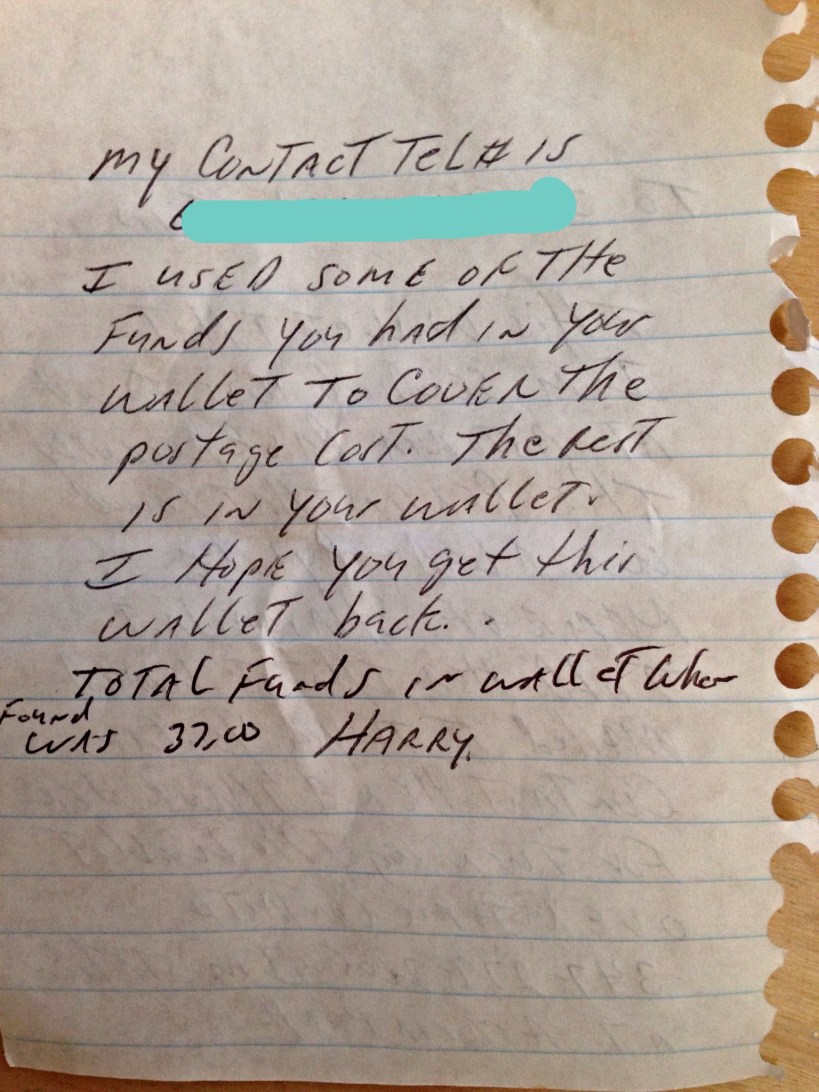 my CONTACT TEL # IS
I USED SOME OF THE
FUNDS YOU had IN YOUR
WALLET TO COVER The
postage COST. The REST
IS IN YOUR WALLET.
I HOPE YOU get this
WALLET back..
TOTAL Funds IN WALLET When
Found
WAS 37.00 HARRY.